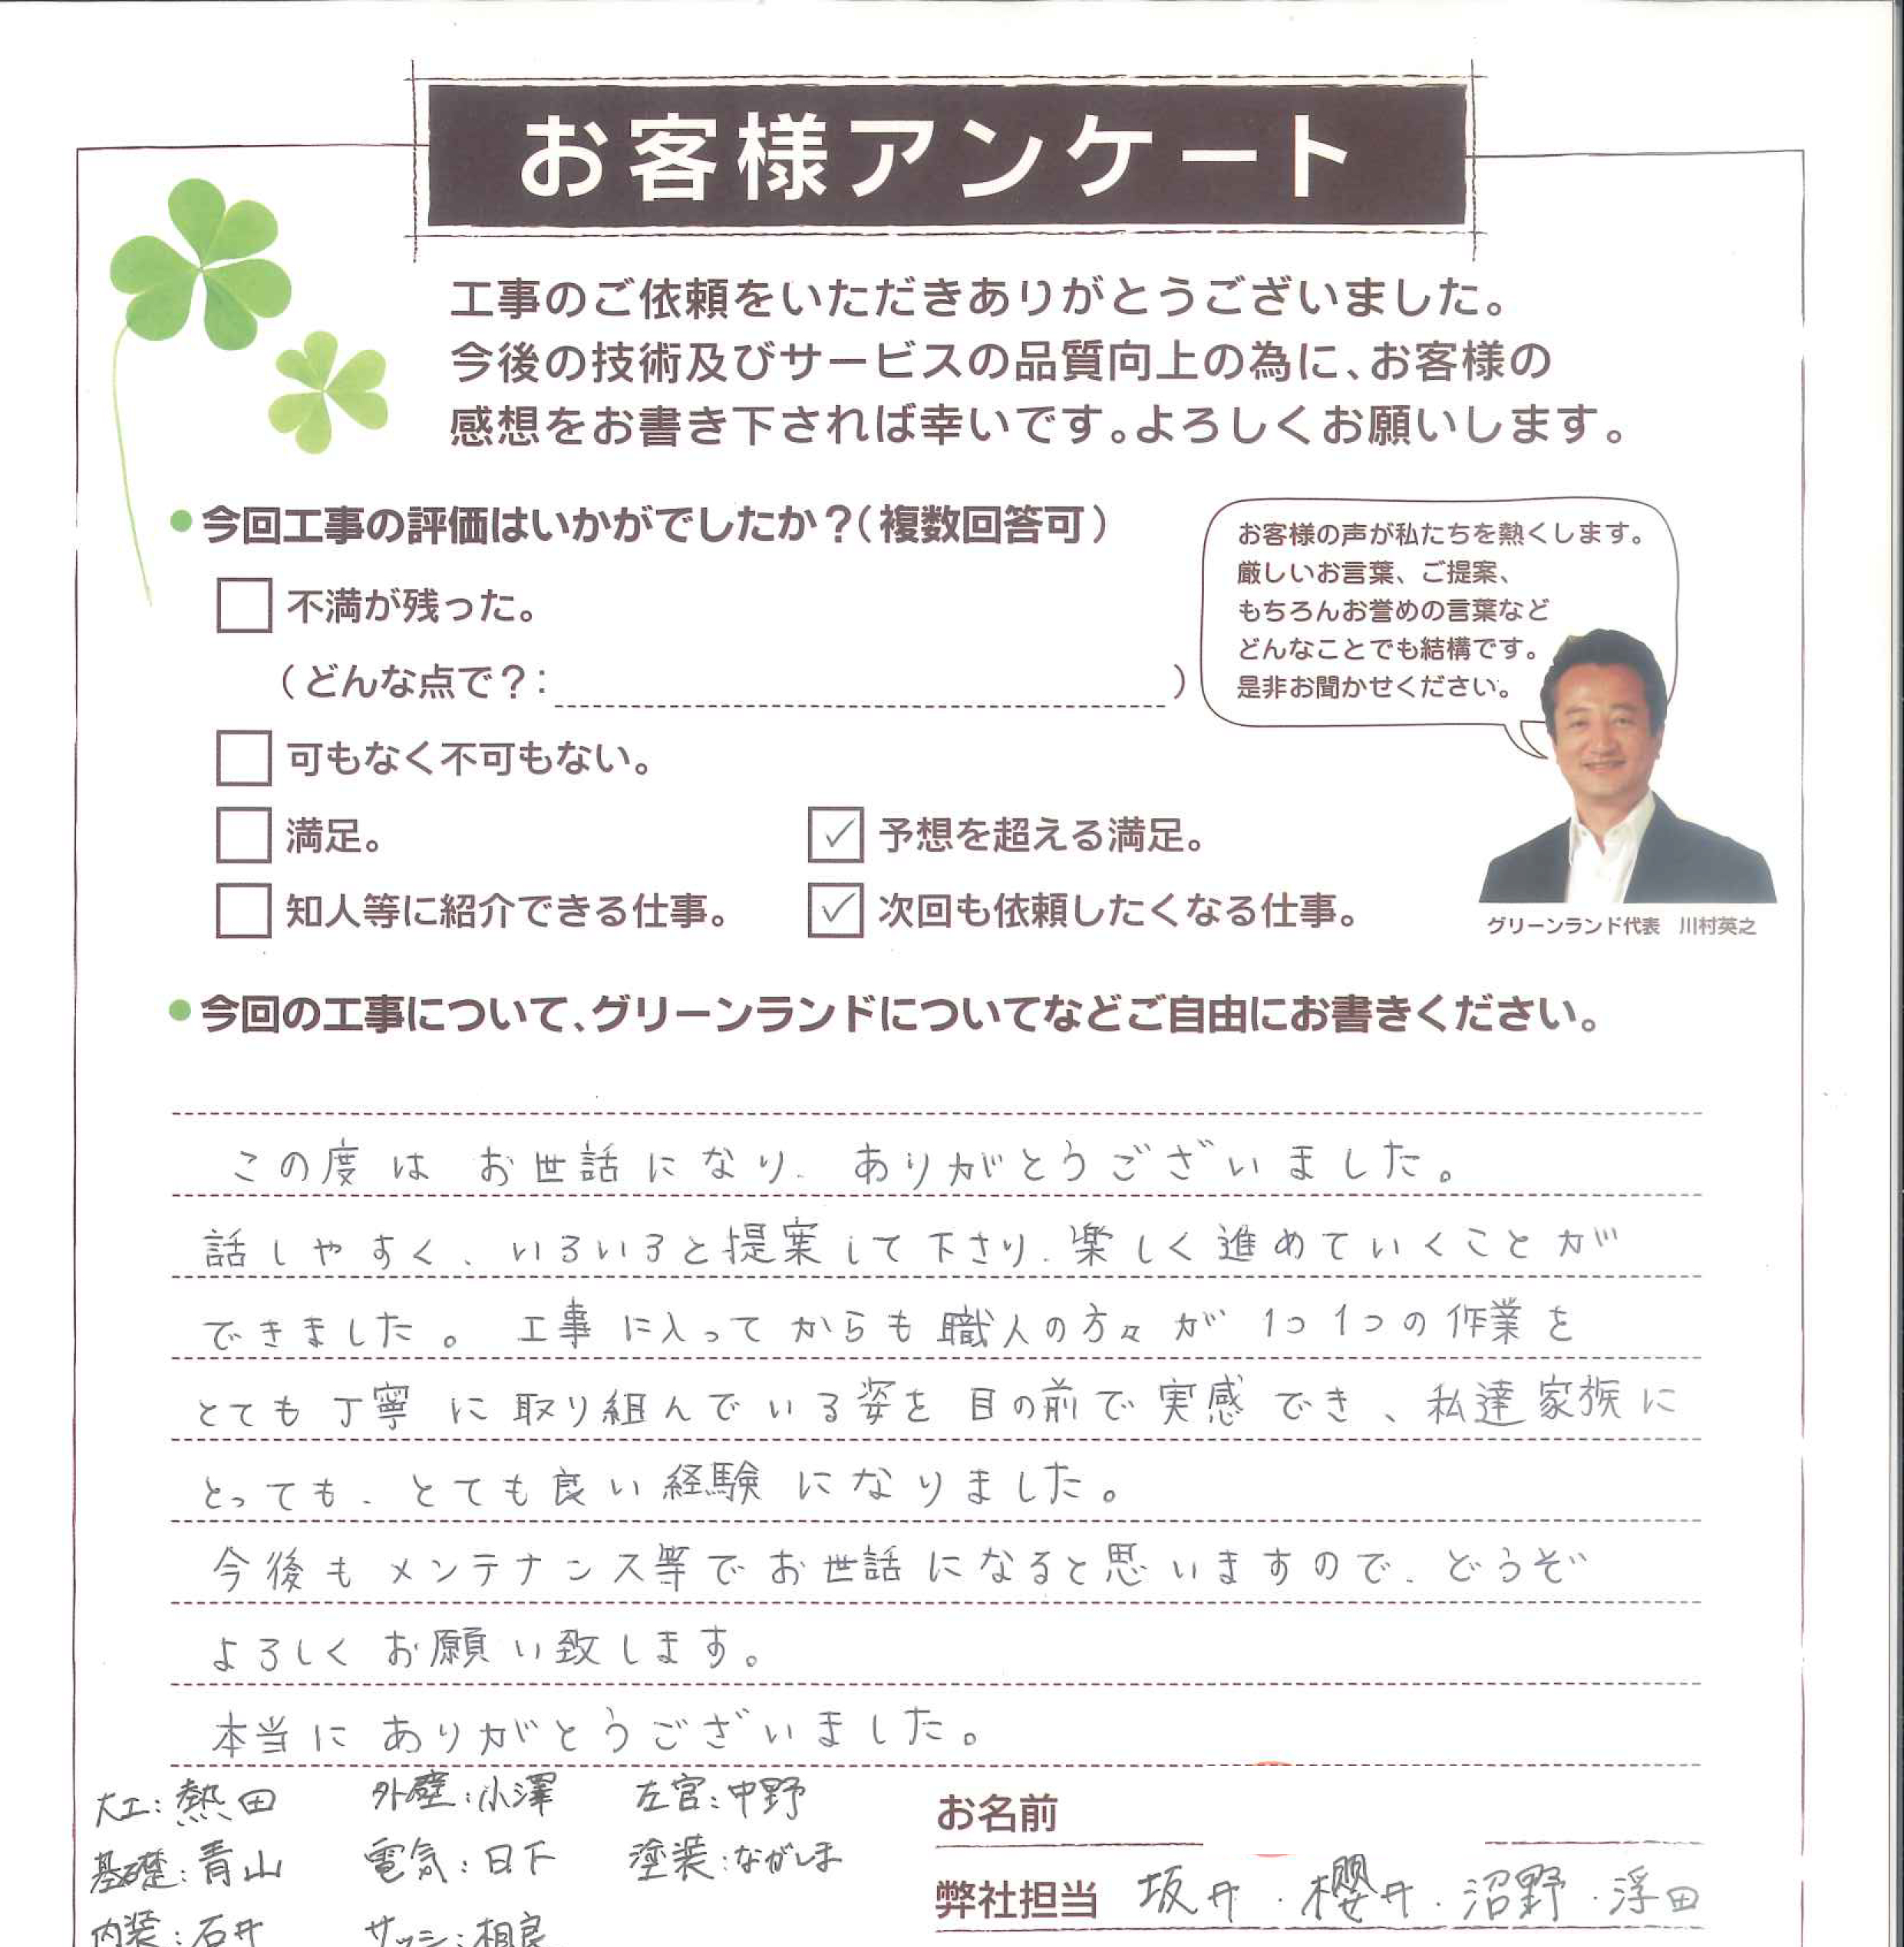 お客様アンケート
工事のご依頼をいただきありがとうございました。
今後の技術及びサービスの品質向上の為に、お客様の
感想をお書き下されば幸いです。よろしくお願いします。
●今回工事の評価はいかがでしたか？（複数回答可）
不満が残った。
（どんな点で？：　）
可もなく不可もない。
満足。
✓ 予想を超える満足。
知人等に紹介できる仕事。
✓ 次回も依頼したくなる仕事。
お客様の声が私たちを熱くします。
厳しいお言葉、ご提案、
もちろんお誉めの言葉など
どんなことでも結構です。
是非お聞かせください。
グリーンランド代表　川村英之
●今回の工事について、グリーンランドについてなどご自由にお書きください。
この度は お世話になり、ありがとうございました。
話しやすく、いろいろと提案して下さり、楽しく進めていくことが
できました。 工事に入ってからも職人の方々が 1つ1つの作業を
とても丁寧に取り組んでいる姿を目の前で実感でき、私達家族に
とっても、とても良い経験になりました。
今後もメンテナンス等でお世話になると思いますので、どうぞ
よろしくお願い致します。
本当にありがとうございました。
大工：熱田　外壁：小澤　左官：中野
基礎：青山　電気：日下　塗装：ながしま
内装：石井　サッシ：相良
お名前
弊社担当 坂井・櫻井・沼野・浮田